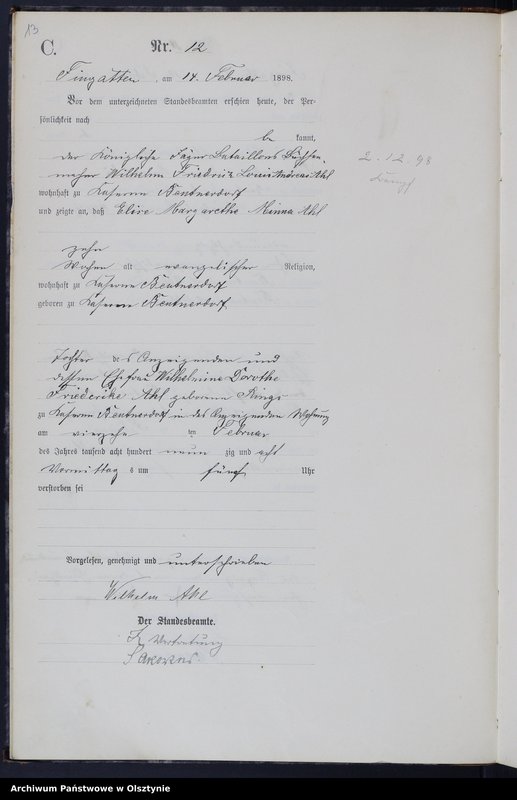 13
C.
Nr. 12
Fingatten, am 14. Februar 1898.
Vor dem unterzeichneten Standesbeamten erschien heute, der Per-
sönlichkeit nach
be kannt,
der Königliche Jäger Bataillons Büchsen-
macher Wilhelm Friedrich Louis Andreas Ahl
wohnhaft zu Kaserne Beutnerdorf
und zeigte an, daß Elise Margarethe Minna Ahl
zehn
Wochen alt evangelischer Religion,
wohnhaft zu Kaserne Beutnerdorf
geboren zu Kaserne Beutnerdorf,
Tochter des Anzeigenden und
dessen Ehefrau Wilhelmine Dorothe
Friederike Ahl geborene
zu Kaserne Beutnerdorf in des Anzeigenden Wohnung
am vierzehn ten Februar
des Jahres tausend acht hundert neun zig und acht
Vormittags um fünf Uhr
verstorben sei
Vorgelesen, genehmigt und unterschrieben
Wilhelm Ahl
Der Standesbeamte.
In Vertretung
2.12.98
Archiwum Państwowe w Olsztynie